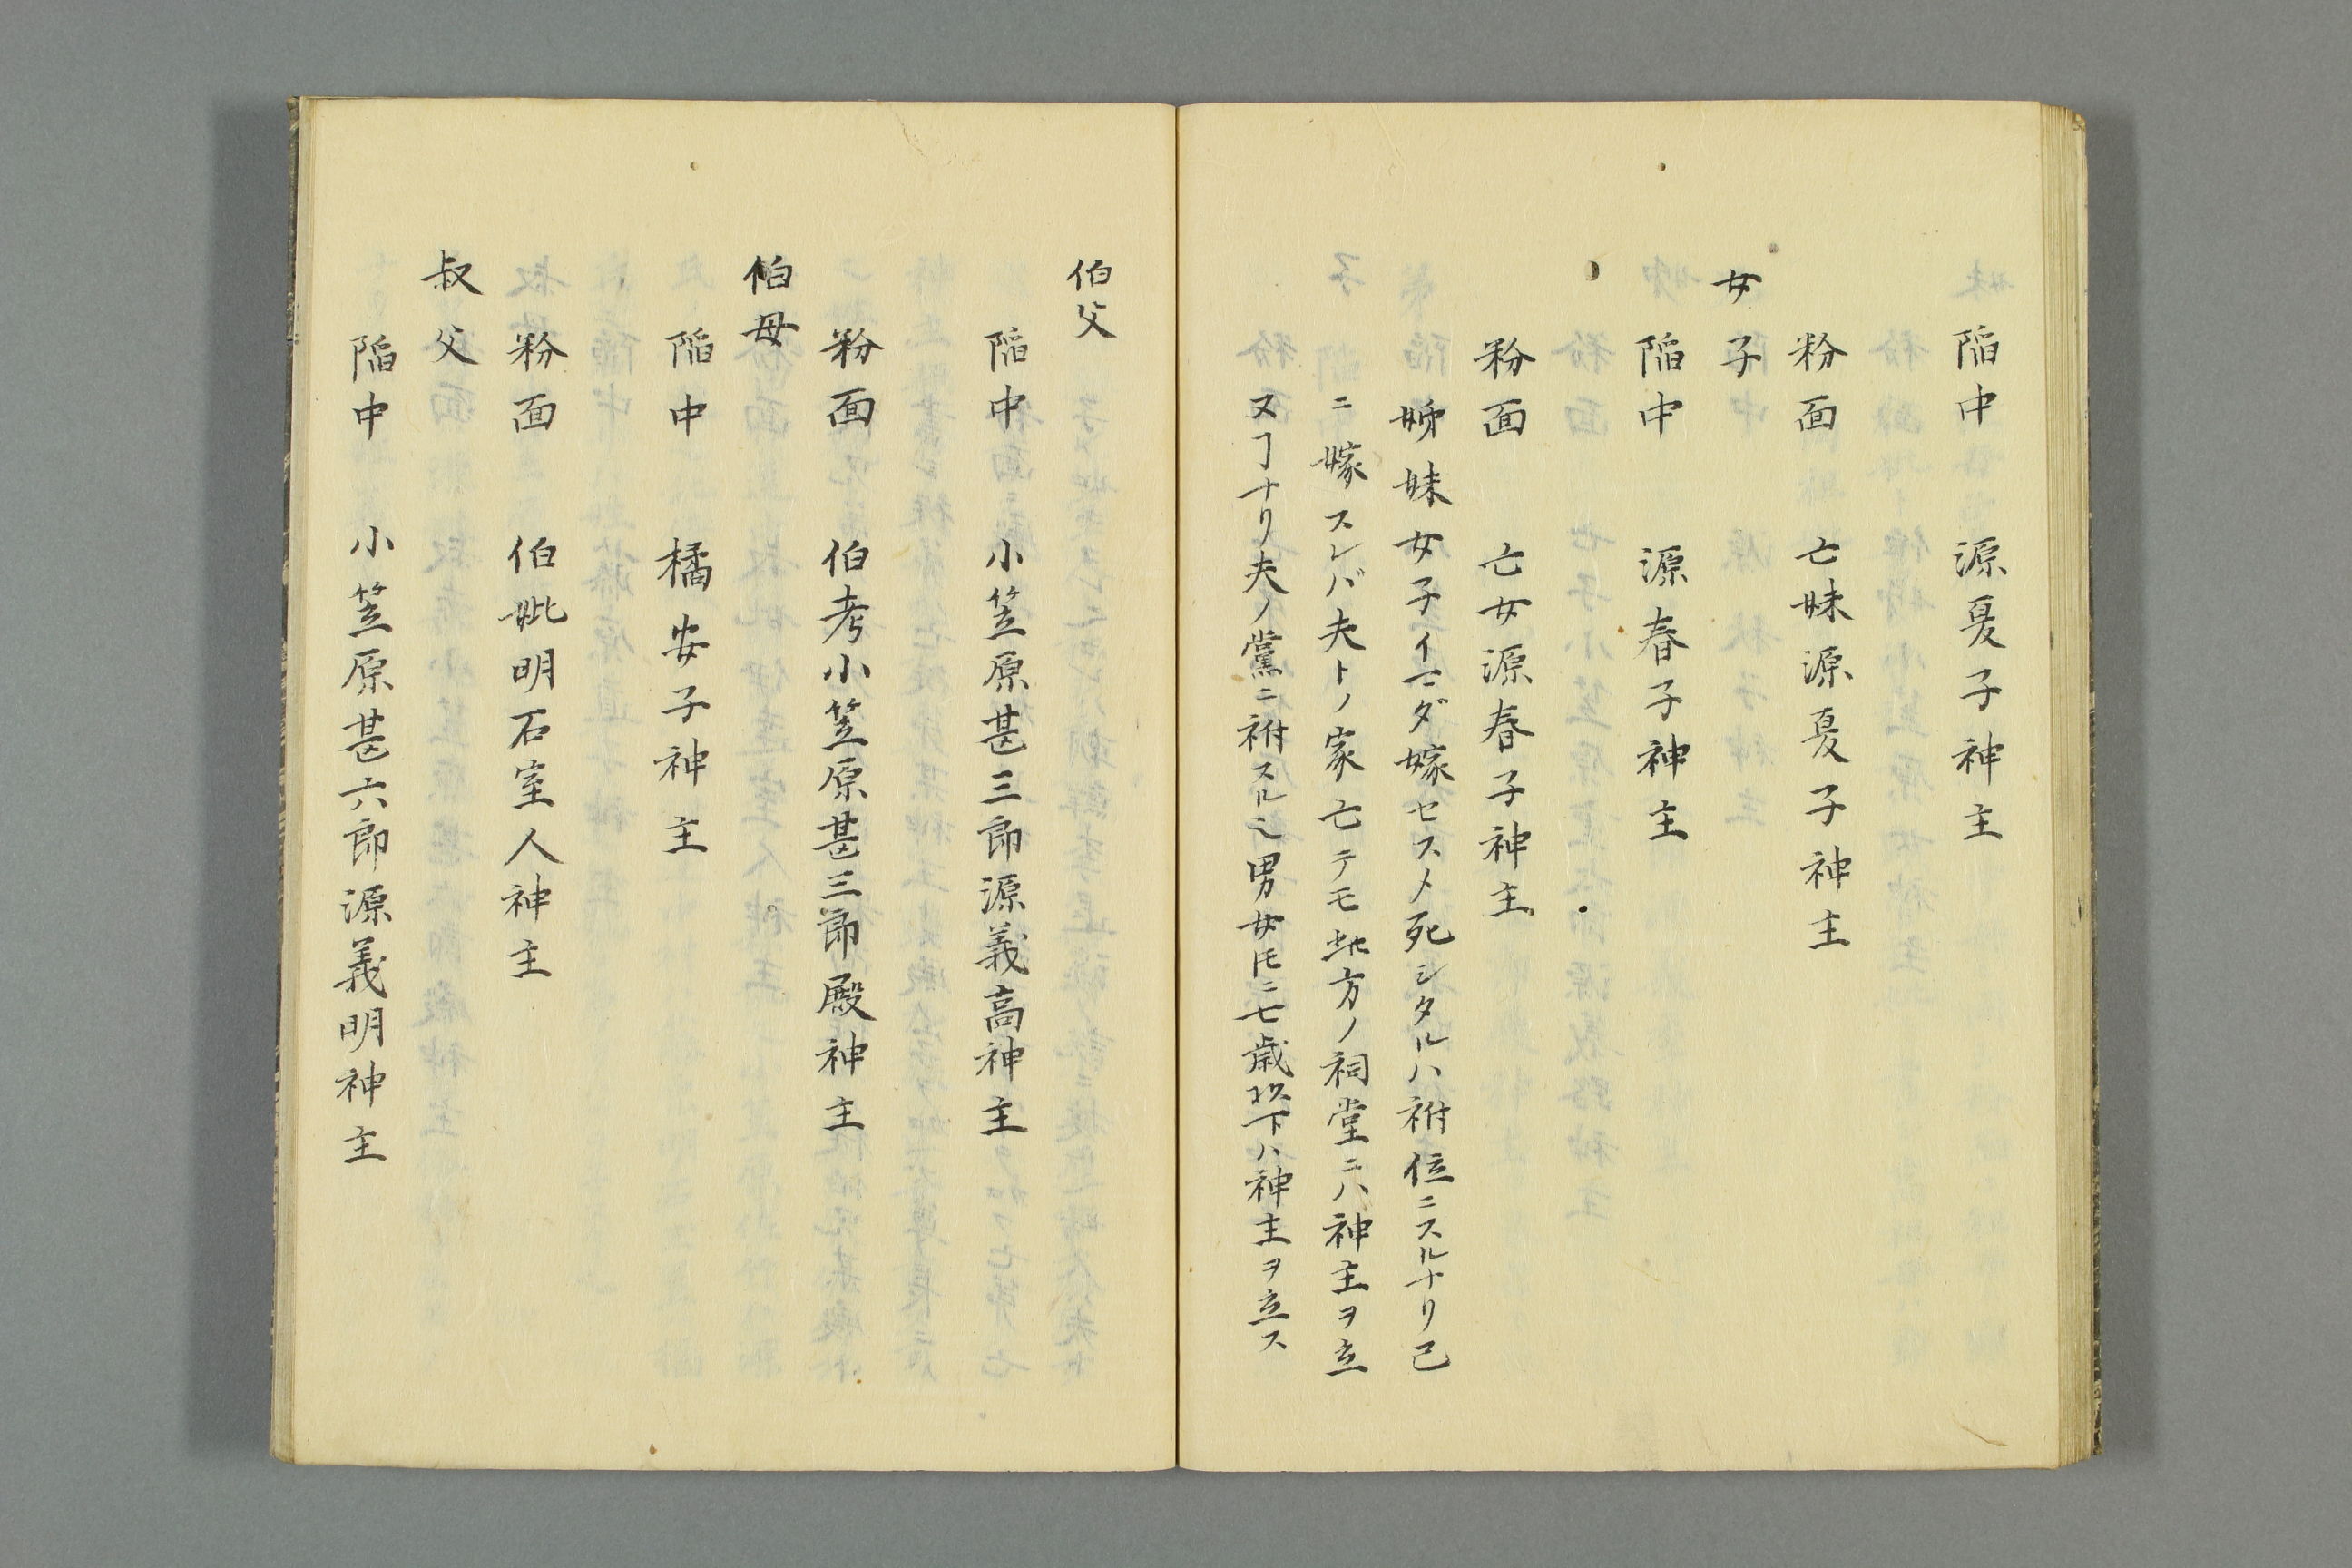 陷中　源夏子神主
粉面　亡妹源夏子神主
女子
陷中　源春子神主
粉面　亡女源春子神主
姊妹女子イマダ嫁セスメ死シタルハ祔位ニスルナリ已
ニ嫁スレバ夫トノ家亡テモ此方ノ祠堂ニハ神主ヲ立
ヌヿナリ夫ノ黨ニ祔スル也男女トモニ七歳以下ハ神主ヲ立ス
伯父
陷中　小笠原甚三郎源義高神主
粉面　伯考小笠原甚三郎殿神主
伯母
陷中　橘安子神主
粉面　伯妣明石室人神主
叔父
陷中　小笠原甚六郎源義明神主